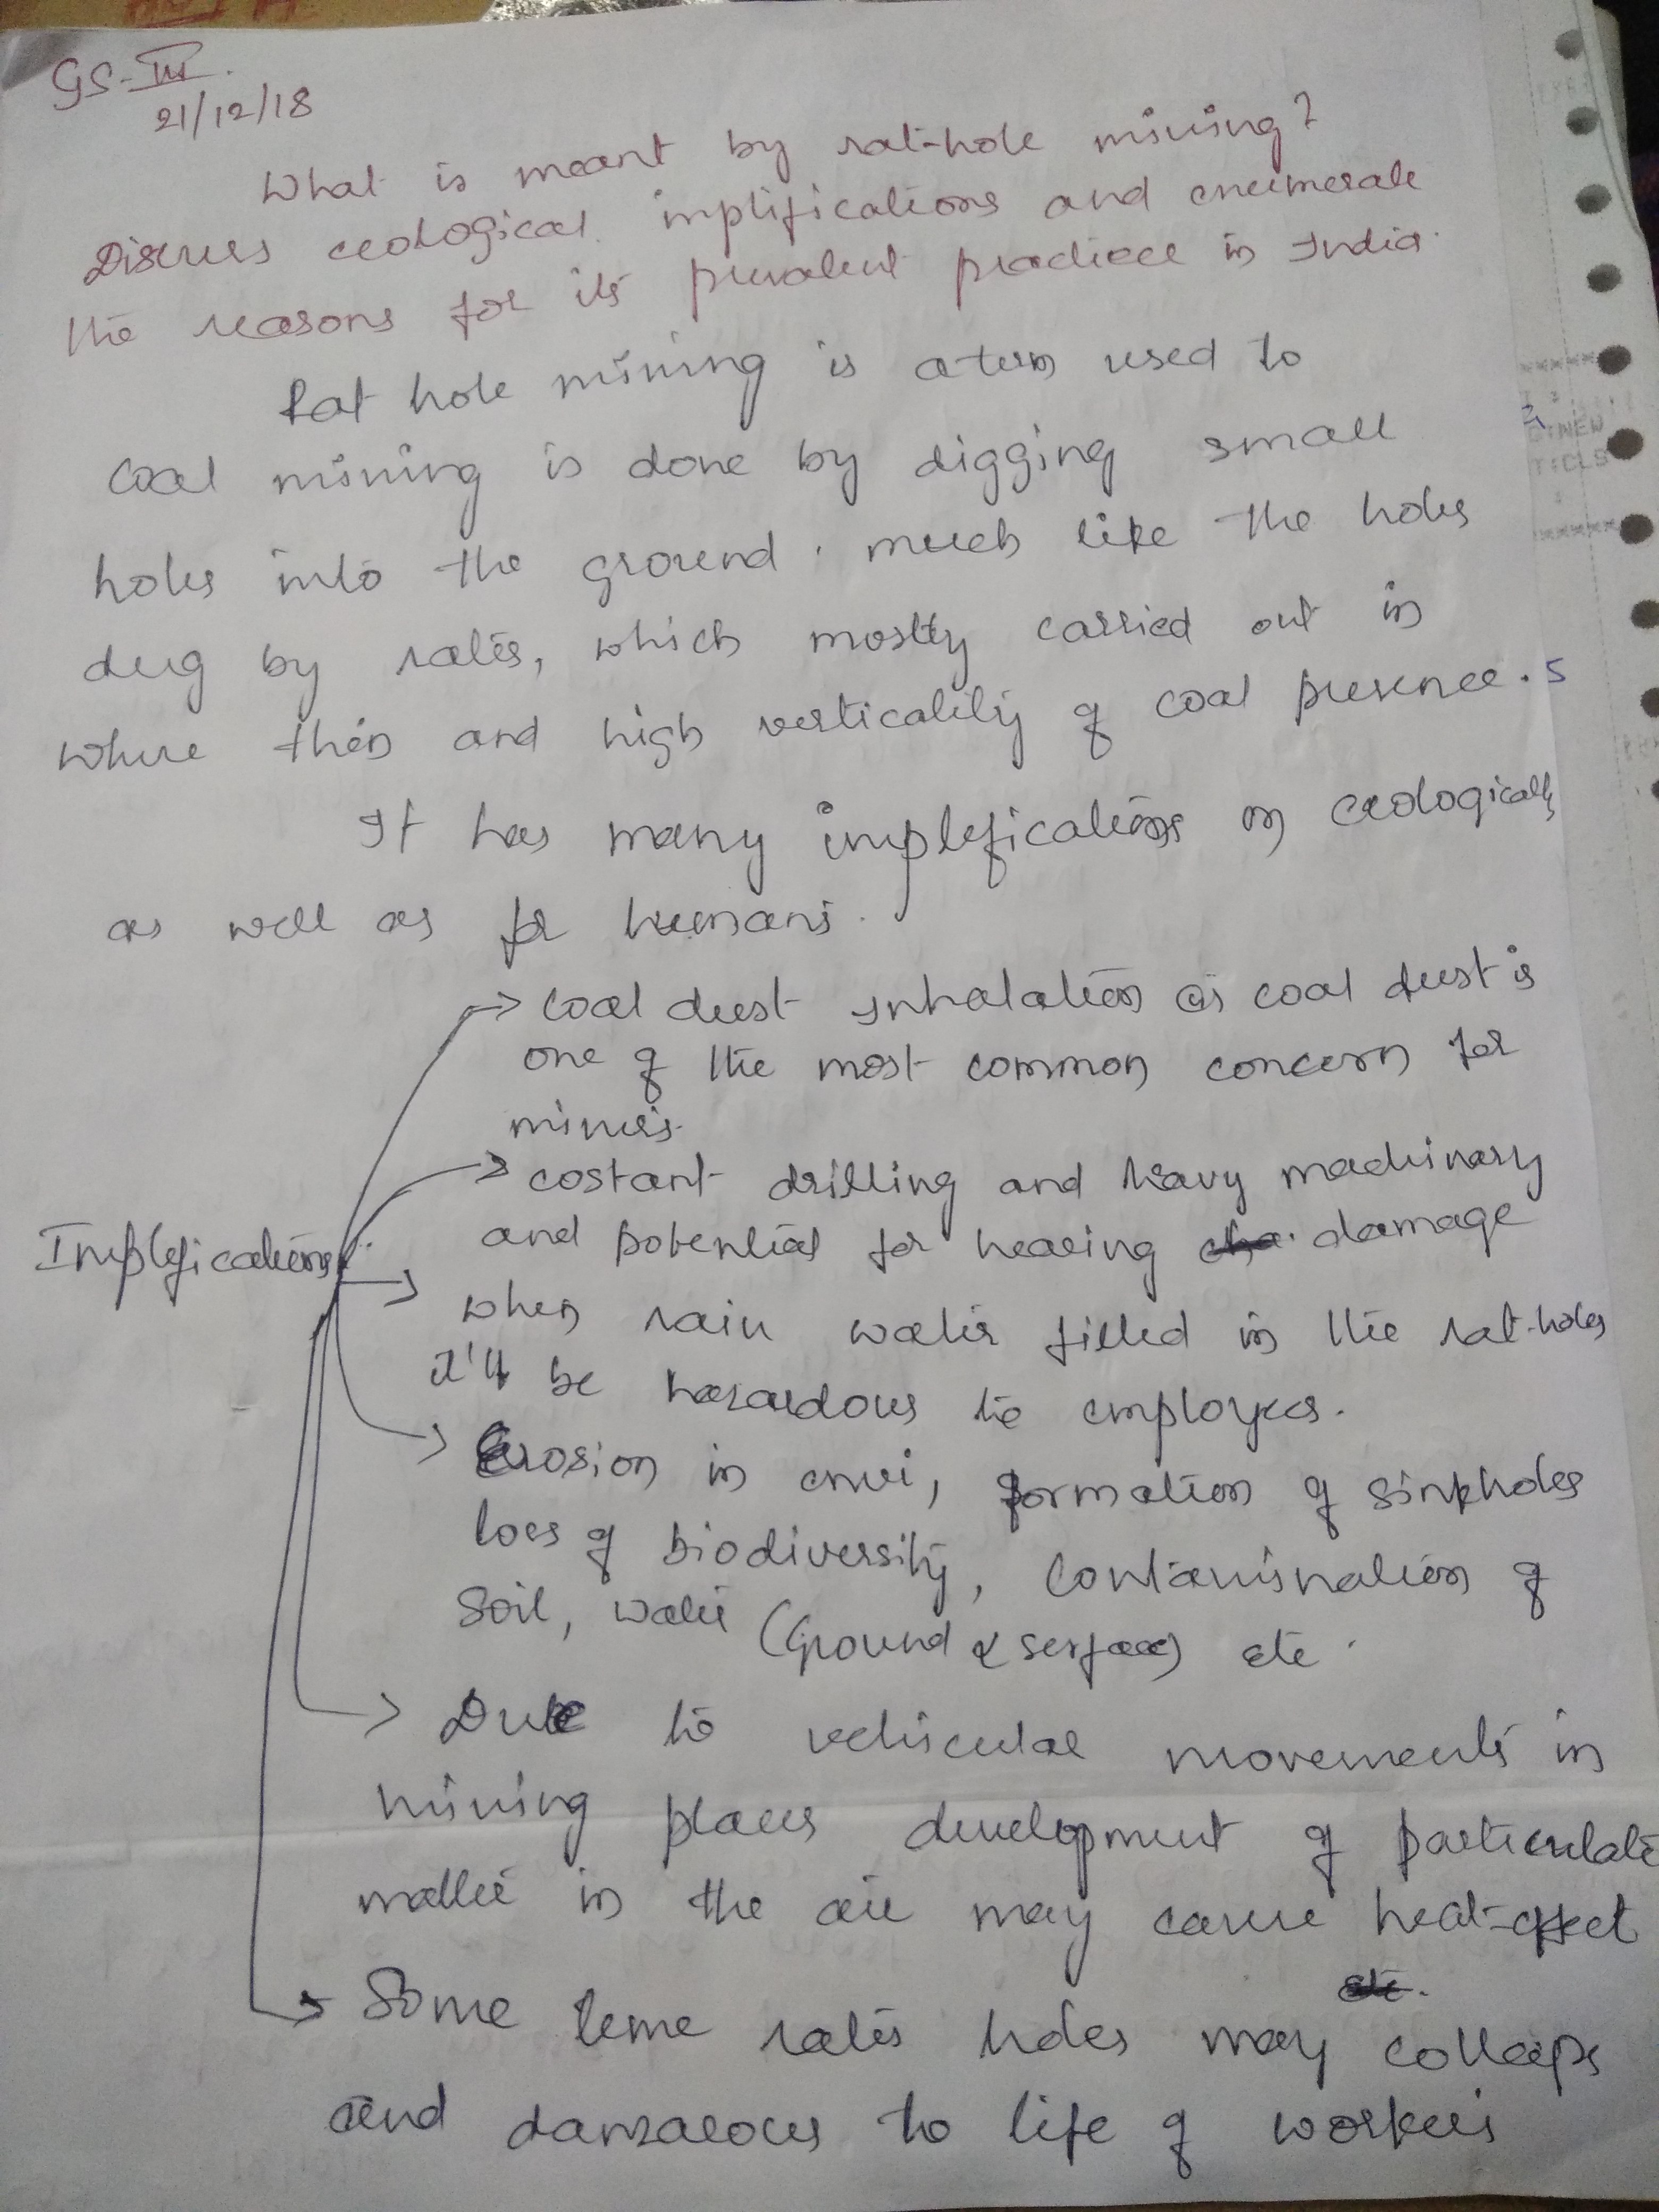 GS-III.
21/12/18
What is meant by rat-hole mining?
Discuss ecological implifications and enumerate
the reasons for its prevalent practice in India.
Rat hole mining is a term used to
coal mining is done by digging small
holes into the ground. much like the holes
dug by rats, which mostly carried out in
where thin and high verticality of coal presence.
It has many implifications on ecologically
as well as for humans.
→ Coal dust Inhalation as coal dust is
one of the most common concern for
miners.
→ costant drilling and heavy machinary
and potential for hearing damage
Implifications
→ when rain water filled in the rat-holes
it'll be hazardous to employees.
→ Erosion in envi, formation of sinkholes
loss of biodiversity, contamisnation of
soil, water (Ground & serface) etc.
→ Due to vehicular movements in
mining places development of particulate
matter in the air may cause heat-effect
etc.
→ Some teme rats holes may collaps
and danzarous to life of workers